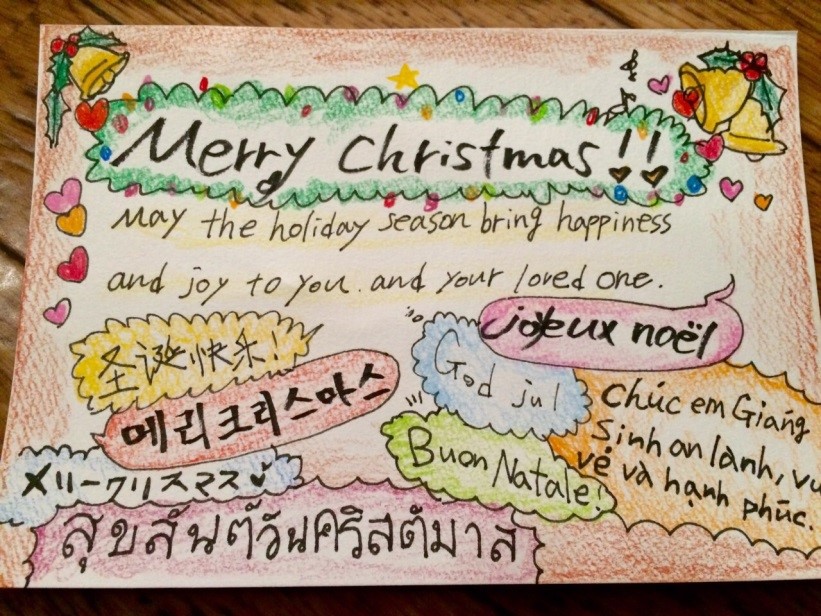 Merry Christmas!!
May the holiday season bring happiness
and joy to you and your loved one.
joyeux noël
圣诞快乐!
God jul
메리크리스마스
Chúc em Giáng
Sinh an lành, vu
vẻ và hạnh phúc.
Buon Natale!
メリークリスマス
สุขสันต์วันคริสต์มาส